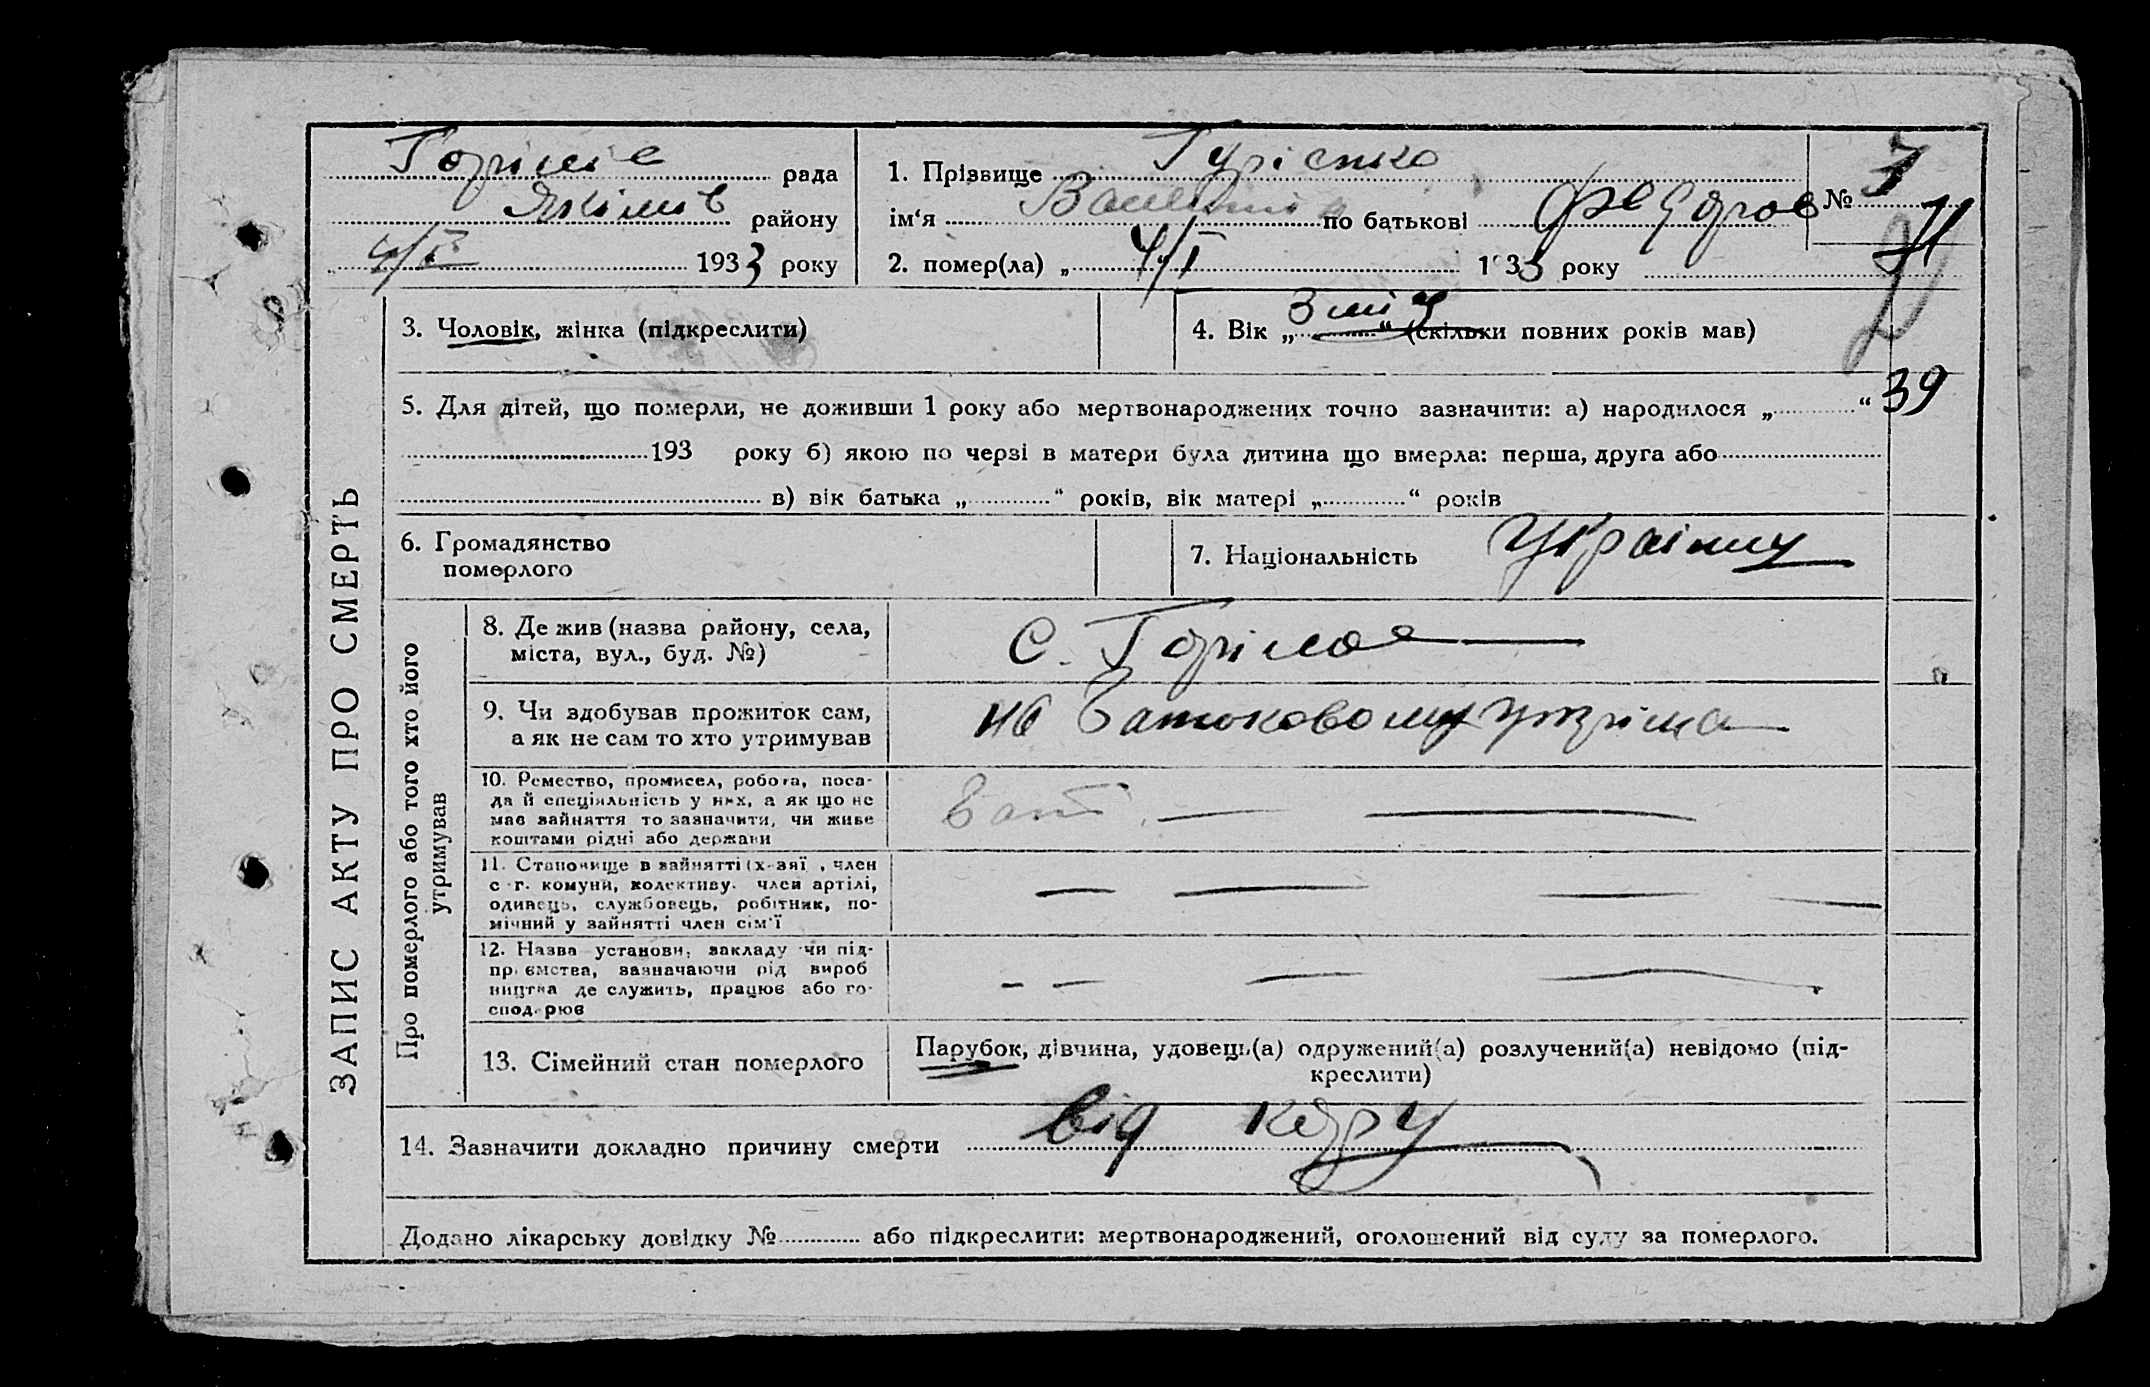 рада
району
4/I 1933 року
1. Прізвище Гурієнко
ім‘я по батькові Федоров
№ 7
2. помер(ла) „ 4/I 1933 року
ЗАПИС АКТУ ПРО СМЕРТЬ
3. Чоловік, жінка (підкреслити)
4. Вік „ 3 міс “ (скільки повних років мав)
39
5. Для дітей, що померли, не доживши 1 року або мертвонароджених точно зазначити: а) народилося „ “
193 року б) якою по черзі в матери була дитина що вмерла: перша, друга або
в) вік батька „ “ років, вік матері „ “ років
6. Громадянство
померлого
7. Національність Українц
Про померлого або того хто його
утримував
8. Де жив (назва району, села,
міста, вул., буд. №)
с.
9. Чи здобував прожиток сам,
а як не сам то хто утримував
на батьковому
10. Ремество, промисел, робота, поса-
да й спеціяльність у них, а як що не
має зайняття то зазначити, чи живе
коштами рідні або держави
Бат
11. Становище в зайнятті (х-зяї , член
с-г. комуни, колективу. член артілі,
одивець, службовець, робітник, по-
мічний у зайнятті член сім‘ї
12. Назва установи, закладу чи під-
приємства, зазначаючи рід вироб
ництва де служить, працює або го-
сподарює
13. Сімейний стан померлого
Парубок, дівчина, удовець(а) одружений(а) розлучений(а) невідомо (під-
креслити)
14. Зазначити докладно причину смерти від кору
Додано лікарську довідку № або підкреслити: мертвонароджений, оголошений від суду за померлого.